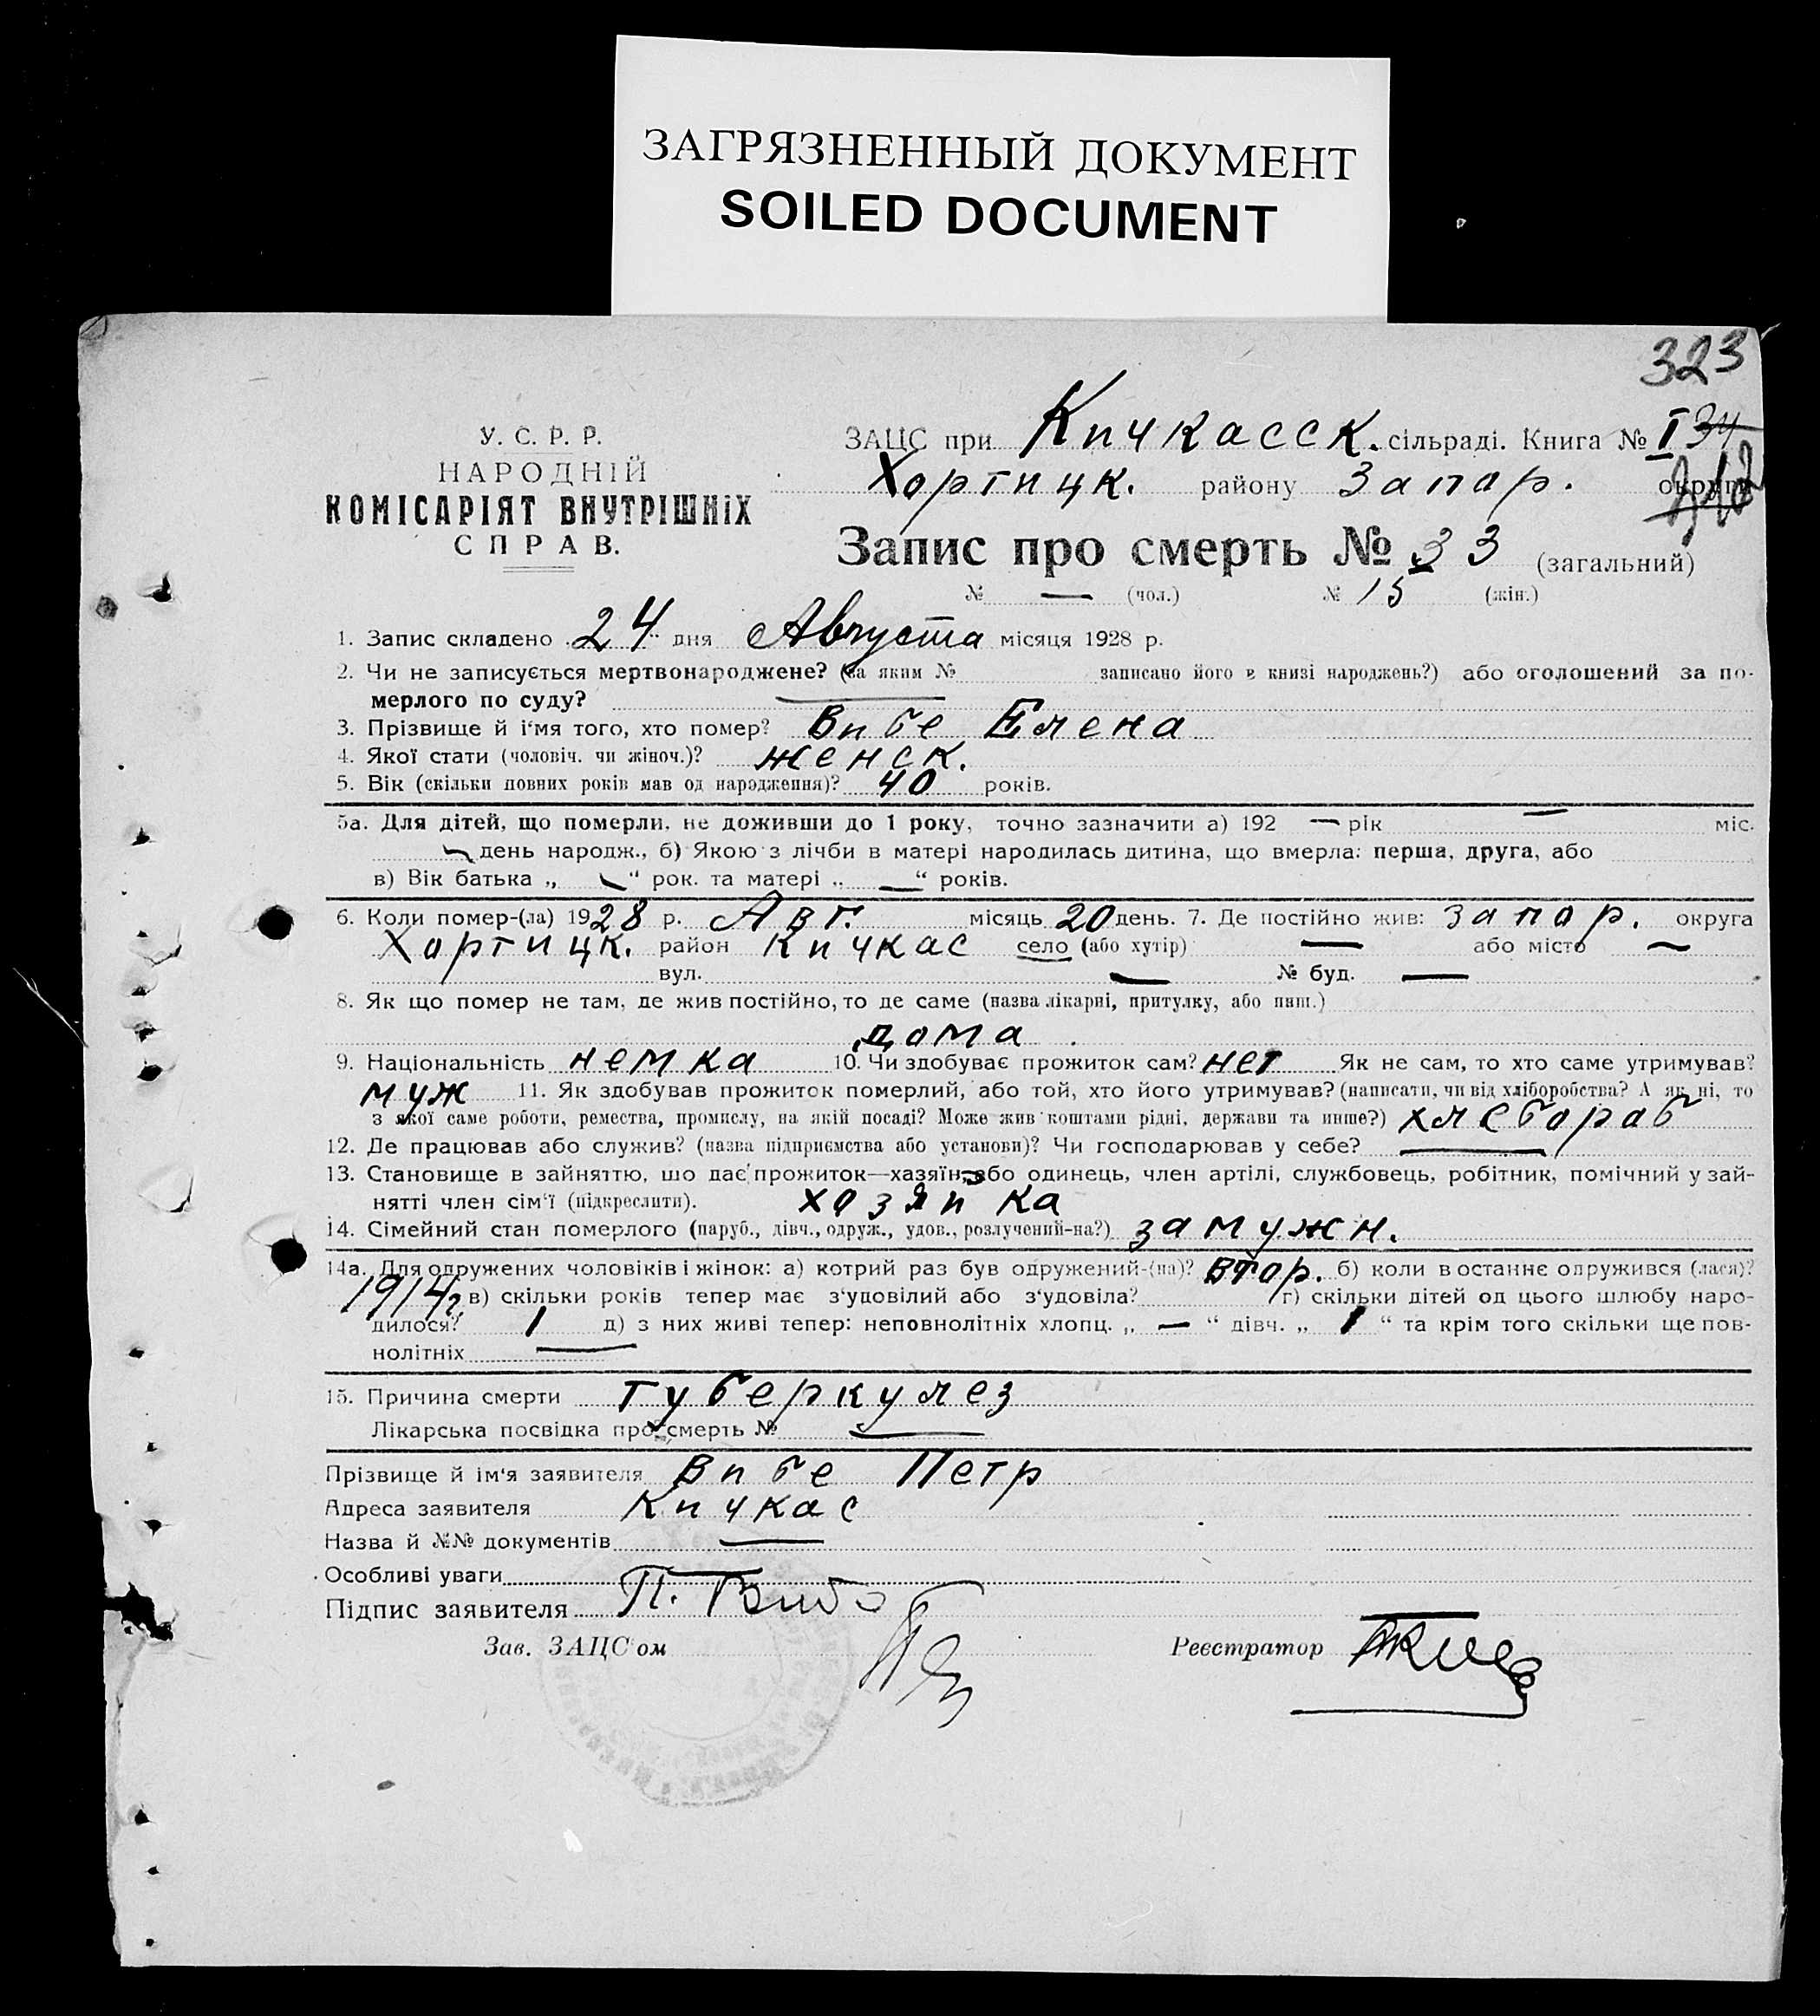 ЗАГРЯЗНЕННЫЙ ДОКУМЕНТ
SOILED DOCUMENT
323
У. С. Р. Р.
НАРОДНІЙ
КОМІСАРІЯТ ВНУТРІШНІХ
СПРАВ.
ЗАЦС при Кичкасск. сільраді. Книга № I 34
Хортицк. району Запар. округи
Запис про смерть № 33 (загальний)
№ — (чол.) № 15 (жін.)
1. Запис складено 24 дня Августа місяця 1928 р.
2. Чи не записується мертвонароджене? (за яким № записано його в книзі народжень?) або оголошений за по-
мерлого по суду? —
3. Прізвище й і'мя того, хто помер? Вибе Елена
4. Якої стати (чоловіч. чи жіноч.)? женск.
5. Вік (скільки повних років мав од народження)? 40 років.
5а. Для дітей, що померли, не доживши до 1 року, точно зазначити а) 192 — рік — міс.
— день народж., б) Якою з лічби в матері народилась дитина, що вмерла: перша, друга, або
в) Вік батька „ — “ рок. та матері „ — “ років.
6. Коли помер-(ла) 1928 р. Авг. місяць 20 день. 7. Де постійно жив: Запар. округа
Хортицк. район Кичкас село (або хутір) — або місто —
вул. — № буд. —
8. Як що помер не там, де жив постійно, то де саме (назва лікарні, притулку, або инш.)
дома.
9. Національність немка 10. Чи здобуває прожиток сам? нет Як не сам, то хто саме утримував?
муж 11. Як здобував прожиток померлий, або той, хто його утримував? (написати, чи від хліборобства? А як ні, то
з якої саме роботи, ремества, промислу, на якій посаді? Може жив коштами рідні, держави та инше?) хлебораб
12. Де працював або служив? (назва підприємства або установи)? Чи господарював у себе? —
13. Становище в зайняттю, шо дає прожиток—хазяїн, або одинець, член артілі, службовець, робітник, помічний у зай-
нятті член сім'ї (підкреслити). хазяйка
14. Сімейний стан померлого (паруб., дівч., одруж., удов., розлучений-на?) замужн.
14а. Для одружених чоловіків і жінок: а) котрий раз був одружений-(на)? втор. б) коли востаннє одружився (лася)?
1914 г. в) скільки років тепер має з'удовілий або з'удовіла? г) скільки дітей од цього шлюбу наро-
дилося? 1 д) з них живі тепер: неповнолітніх хлопц. „ — “ дівч. „ 1 “ та крім того скільки ще пов-
нолітніх —
15. Причина смерти туберкулез
Лікарська посвідка про смерть № —
Прізвище й ім'я заявителя Вибе Петр
Адреса заявителя Кичкас
Назва й №№ документів —
Особливі уваги
Підпис заявителя П. Вибе
Зав. ЗАЦС'ом Реєстратор